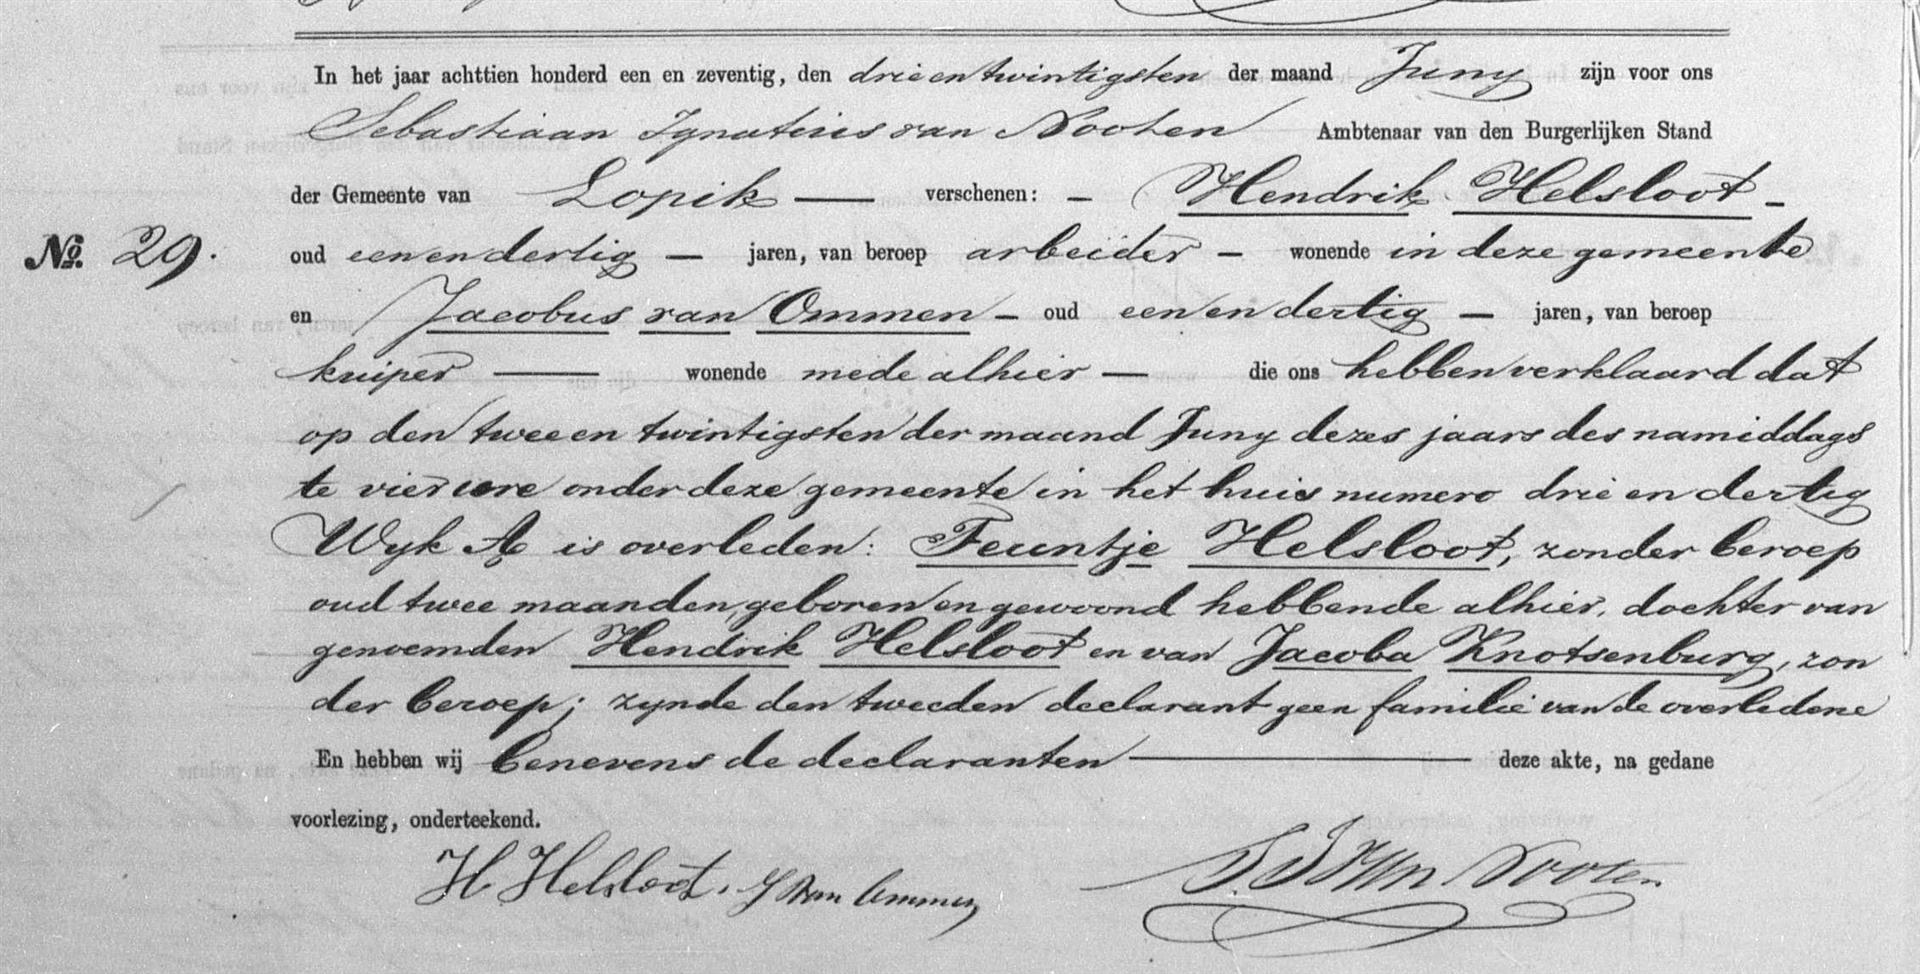 In het jaar achttien honderd een en zeventig, den drieentwintigsten der maand Juny zijn voor ons
Sebastiaan Ignatius van Nooten Ambtenaar van den Burgerlijken Stand
der Gemeente van Lopik — verschenen: - Hendrik Helsloot -
No. 29. oud eenendertig — jaren, van beroep arbeider - wonende in deze gemeente
en Jacobus van Ommen - oud eenendertig — jaren, van beroep
kuiper — wonende mede alhier — die ons hebben verklaard dat
op den tweeentwintigsten der maand Juny dezes jaars des namiddags
te vier ure onder deze gemeente in het huis numero drie en dertig
Wyk A is overleden: Teuntje Helsloot, zonder beroep
oud twee maanden, geboren en gewoond hebbende alhier, dochter van
genoemden Hendrik Helsloot en van Jacoba Knotsenburg, zon
der beroep; zynde den tweeden declarant geen familie van de overledene
En hebben wij benevens de declaranten — deze akte, na gedane
voorlezing, onderteekend.
H Helsloot. J van Ommen S I van Nooten